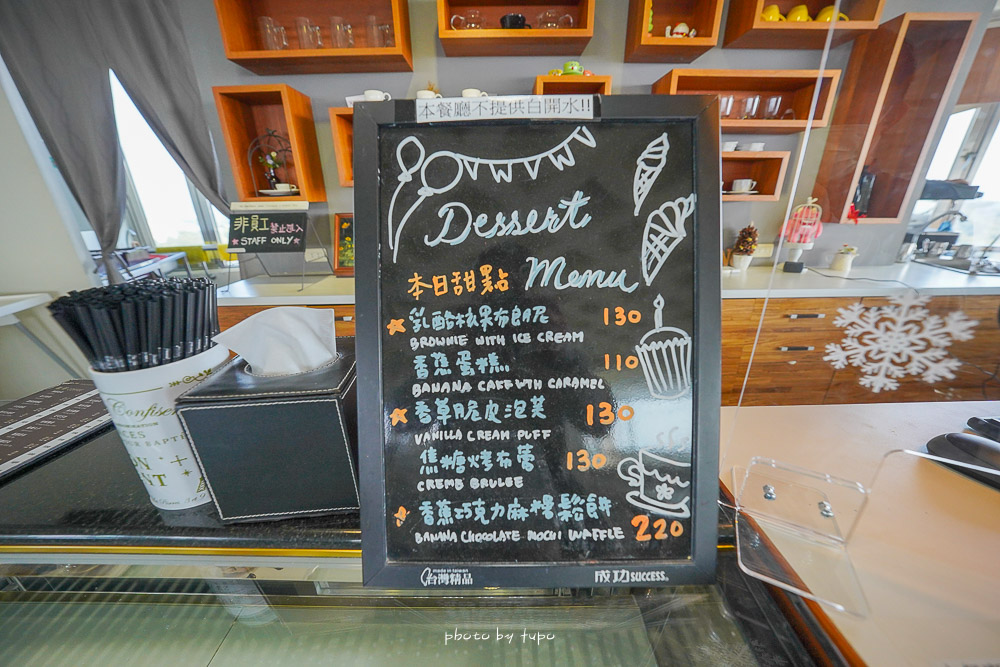 本餐廳不提供白開水!!
Dessert
本日甜點 Menu
乳酪核果布朗尼 130
BROWNIE WITH ICE CREAM
香蕉蛋糕 110
BANANA CAKE WITH CARAMEL
香草脆皮泡芙 130
VANILLA CREAM PUFF
焦糖烤布蕾 130
CREME BRULEE
香蕉巧克力麻糬鬆餅
BANANA CHOCOLATE MOCHI WAFFLE 220
made in taiwan
台灣精品
成功 SUCCESS®
非員工禁止進入
STAFF ONLY
Confise
photo by tupo